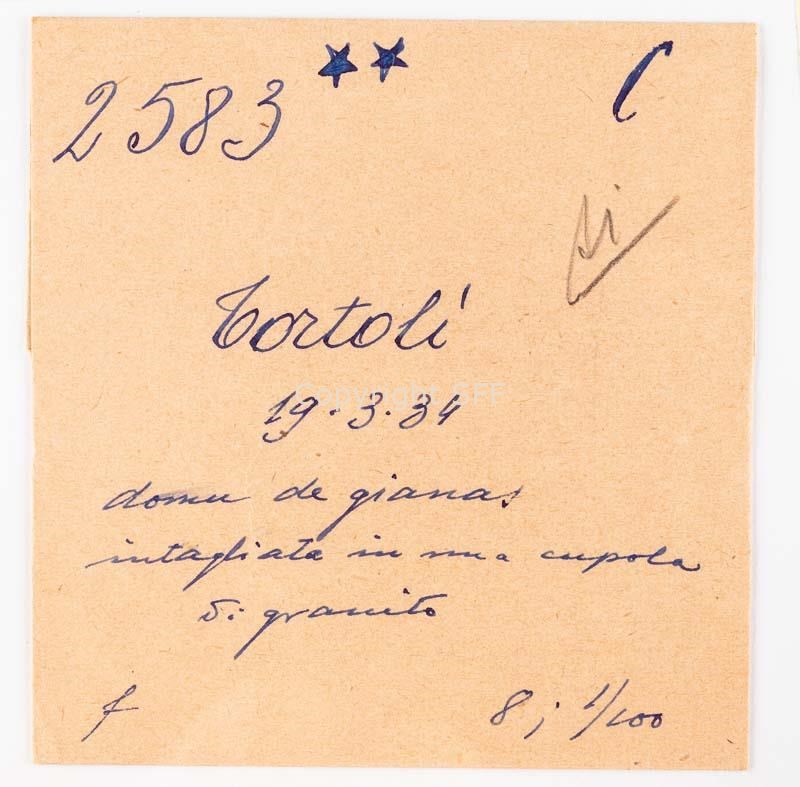 2583 ★★ C
si
Tortolì
19.3.34
domu de gianas
intagliata in una cupola
di granito
f 8; 1/100
Copyright SFF